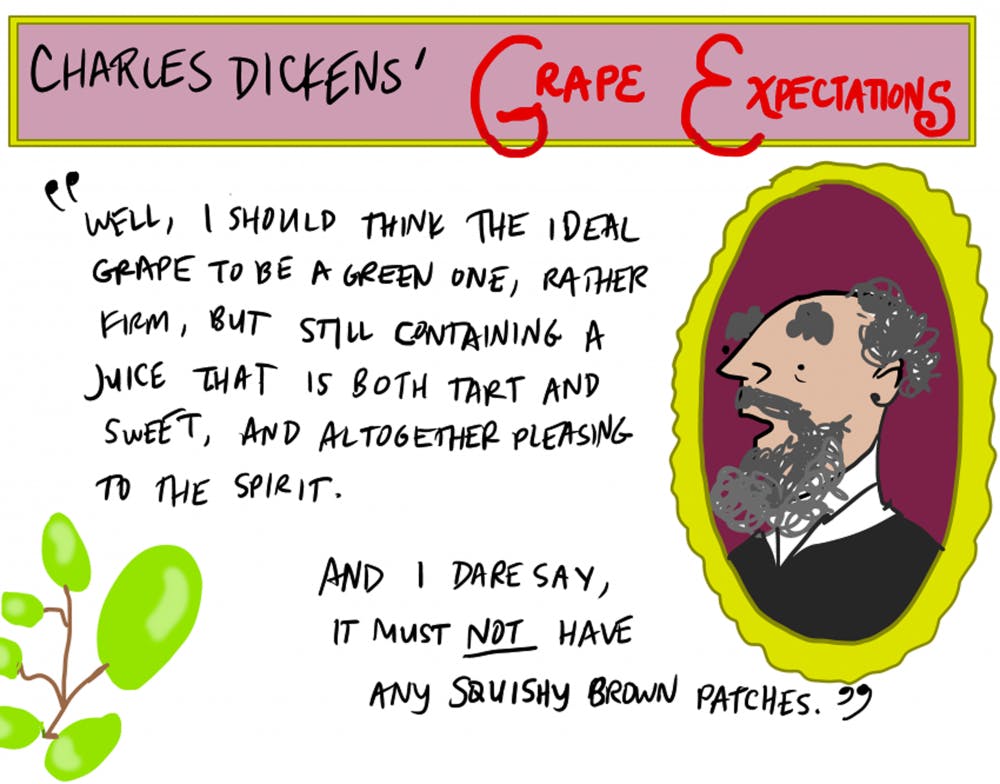 CHARLES DICKENS' GRAPE EXPECTATIONS
"WELL, I SHOULD THINK THE IDEAL
GRAPE TO BE A GREEN ONE, RATHER
FIRM, BUT STILL CONTAINING A
JUICE THAT IS BOTH TART AND
SWEET, AND ALTOGETHER PLEASING
TO THE SPIRIT.
AND I DARE SAY,
IT MUST NOT HAVE
ANY SQUISHY BROWN PATCHES."